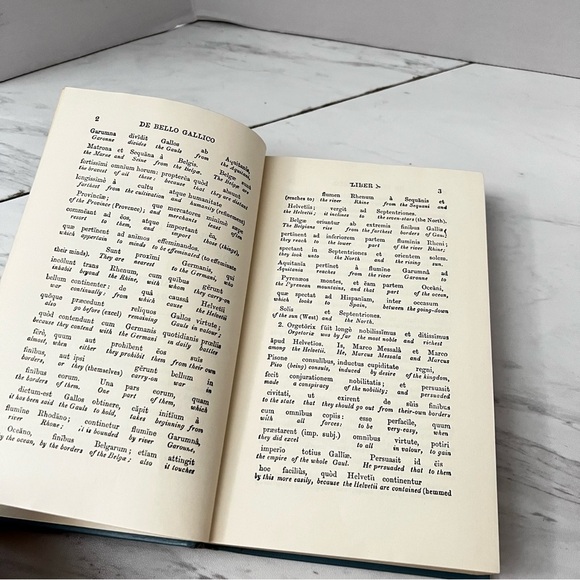 2
DE BELLO GALLICO
Garumna dividit Gallos ab Aquitania,
Garonne divides the Gauls from the Aquitania,
Matrona et Sequăna à Belgis. Belgæ sunt
the Marne and Seine from the Belgæ. The Belgæ are
fortissimi omnium horum: proptereà quòd absunt
the bravest of all these: because that they are distant
longissimè à cultu atque humanitate
farthest from the cultivation and humanity (refinement)
Provinciæ; que mercatores minimè sæpe
of the Province (Provence); and merchants least often
commĕant ad eos, atque important ea,
resort to them, and import those (things),
quæ pertinent ad animos effeminandos.
which appertain to minds to be effeminated (to effeminate
their minds). Sunt proximi Germanis, qui
They are nearest to the Germans, who
incŏlunt trans Rhenum, cum quibus gĕrunt
inhabit beyond the Rhine, with whom they carry-on
bellum continenter; de quâ causâ Helvetii
war continually; from which cause the Helvetii
quŏque præcedunt reliquos Gallos virtute;
also go before (excel) remaining Gauls in valour;
quòd contendunt cum Germanis quotidianis prœliis
because they contend with the Germans in daily battles
fĕrè, quum aut prohibent eos suis
almost, when either they prohibit them from their own
finibus, aut ipsi gĕrunt bellum in
borders, or they (themselves) carry-on war in
finibus eorum. Una pars eorum, quam
the borders of them. One part of them, which
dictum-est Gallos obtinere, căpit initium à
it has been said the Gauls to hold, takes beginning from
flumine Rhodăno; continetur flumine Garumnâ,
the river Rhone; it is bounded by the river Garonne,
Oceăno, finibus Belgarum; etiam attingit
by the ocean, by the borders of the Belgæ; also it touches
LIBER I.
3
flumen Rhenum à Sequănis et
(reaches to) the river Rhine from the Sequani and
Helvetiis; vergit ad Septentriones.
the Helvetii; it inclines to the seven-stars (the North).
Belgæ oriuntur ab extremis finibus Galliæ;
The Belgians rise from the farthest borders of Gaul;
pertinent ad inferiorem partem fluminis Rheni;
they reach to the lower part of the river Rhine;
spectant in Septentriones et orientem solem.
they look unto the North and the rising sun.
Aquitania pertinet à flumine Garumnâ ad
Aquitania reaches from the river Garonne to
Pyrenæos montes, et ĕam partem Oceăni,
the Pyrenean mountains, and that part of the ocean,
quæ spectat ad Hispaniam, inter occasum
which looks to Spain, between the going-down
Solis et Septentriones.
of the sun (West) and the North.
2. Orgetŏrix fuit longè nobilissimus et ditissimus
Orgetorix was by far the most noble and richest
ăpud Helvetios. Is, Marco Messalâ et Marco
among the Helvetii. He, Marcus Messala and Marcus
Pisone consulibus, inductus cupiditate regni,
Piso (being) consuls, induced by desire of the kingdom,
fecit conjurationem nobilitatis; et persuasit
made a conspiracy of the nobility; and persuaded
civitati, ut exirent de sŭis finibus
to the state that they should go out from their-own borders
cum omnibus copiis: esse perfacile, quum
with all forces: to be very-easy, when
præstarent (imp. subj.) omnibus virtute, potiri
they did excel to all in valour, to gain
imperio totius Galliæ. Persuasit id eis
the empire of the whole Gaul. He persuaded that to them
hoc facilius, quòd Helvetii continentur
by this more easily, because the Helvetii are contained (hemmed